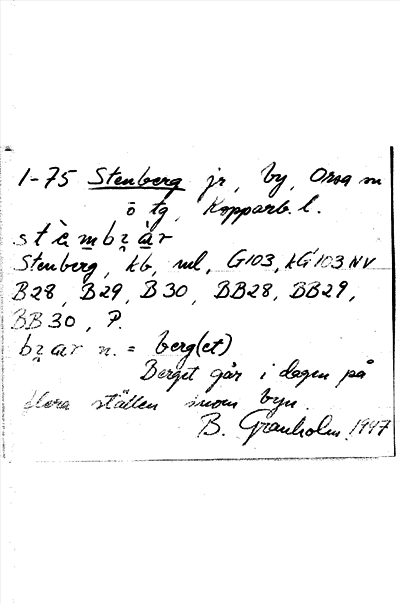 1-75 Stenberg jr, by, Orsa sn
ö tg, Kopparb. l.
Stenberg, kb, ml, G103, kG103 NV
B28, B29, B30, BB28, BB29,
BB30, P.
n. = berg(et)
Berget går i dagen på
flera ställen inom byn.
B. Granholm 1947